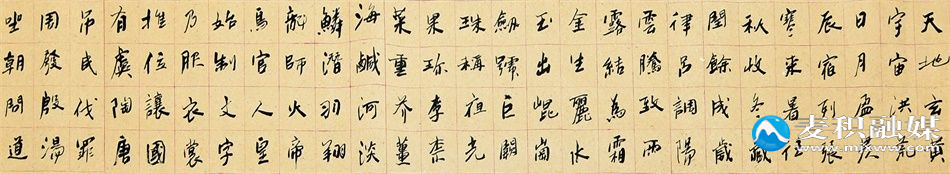 天地玄黃
宇宙洪荒
日月盈昃
辰宿列張
寒來暑往
秋收冬藏
閏餘成歲
律吕調陽
雲騰致雨
露結為霜
金生麗水
玉出崐崗
劍號巨闕
珠稱夜光
果珍李柰
菜重芥薑
海鹹河淡
鱗潛羽翔
龍師火帝
鳥官人皇
始制文字
乃服衣裳
推位讓國
有虞陶唐
吊民伐罪
周發殷湯
坐朝問道
麦积融媒
www.mjxww.com